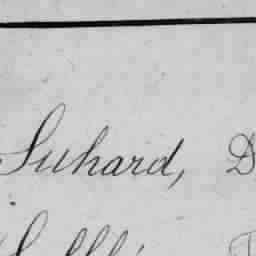 Suhard, D